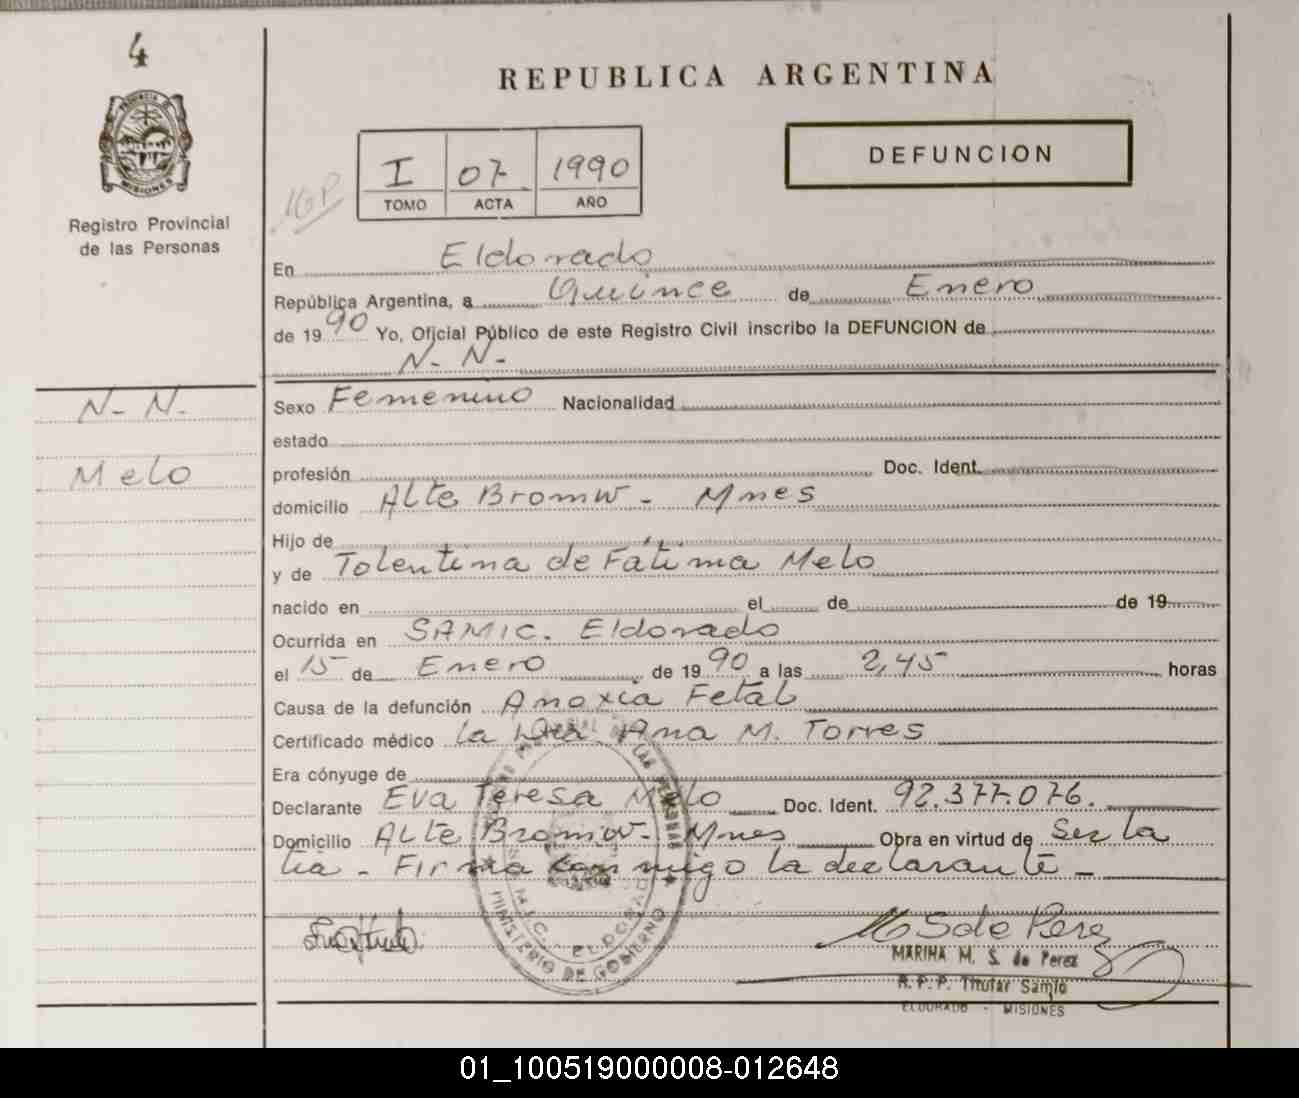 4
REPUBLICA ARGENTINA
DEFUNCION
I 07 1990
TOMO ACTA AÑO
PROVINCIA DE
MISIONES
Registro Provincial
de las Personas
En Eldorado
República Argentina, a Quince de Enero
de 1990 Yo, Oficial Público de este Registro Civil inscribo la DEFUNCION de
N- N-
N- N.
Melo
Sexo Femenino Nacionalidad
estado
profesión Doc. Ident.
domicilio Alte Brown - Mnes
Hijo de
y de Tolentina de Fátima Melo
nacido en el de de 19
Ocurrida en SAMIC. Eldorado
el 15 de Enero de 1990 a las 2,45 horas
Causa de la defunción Anoxia Fetal
Certificado médico La Dra Ana M. Torres
Era cónyuge de
Declarante Eva Teresa Melo Doc. Ident. 92.377.076.
Domicilio Alte Brown - Mnes Obra en virtud de Ser la
tia - Firma conmigo la declarante -
MINISTERIO DE GOBIERNO
M Sole Perez
MARINA M. S. de Perez
R.P.P. Titular Samic
ELDORADO - MISIONES
01_100519000008-012648